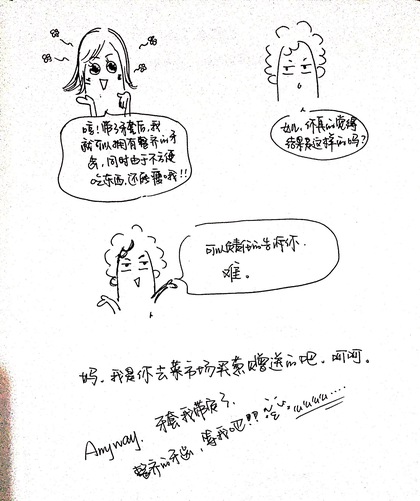 哇！带了牙套后，我
就可以拥有整齐的牙
齿，同时由于不方便
吃东西，还能瘦哦！！
你真的觉得
结果是这样的吗？
可以负责的告诉你，
难。
妈，我是你去菜市场买菜赠送的吧，呵呵。
Anyway， 牙套我带定了，
整齐的牙齿，等我吧！！